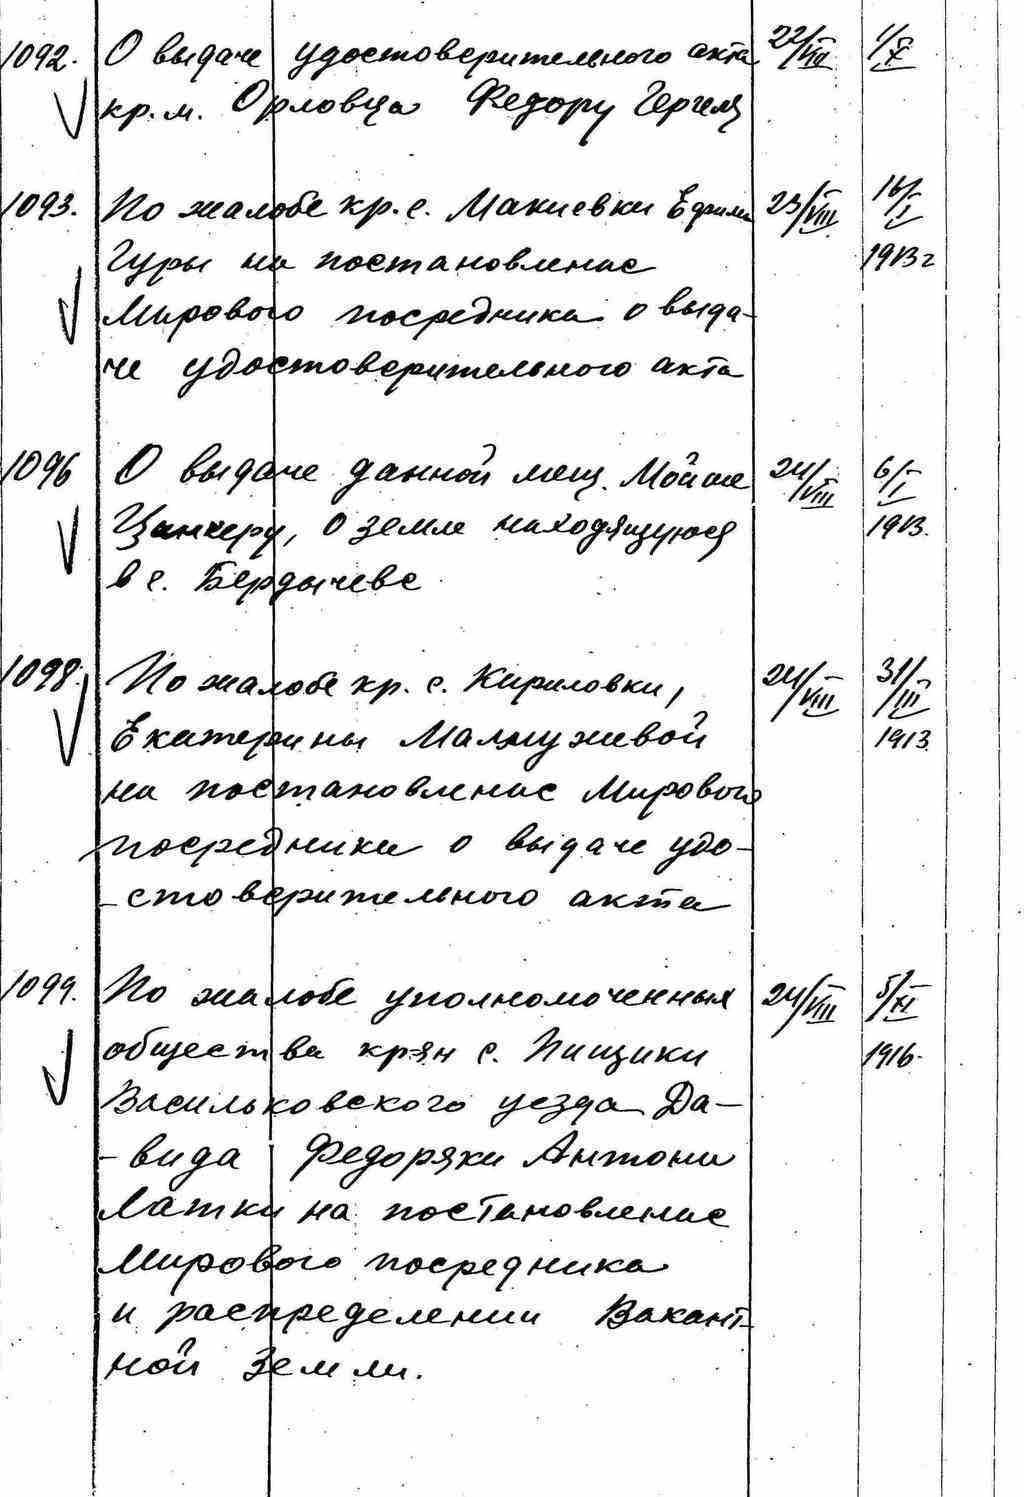 1092. О выдаче удостоверительного акта 22/VIII 1/X
кр. м. Орловца Федору Гергелю
1093. По жалобе кр. с. Макиевки Ефима 23/VIII 16/I
Гуры на постановление 1913 г
Мирового посредника о выда-
че удостоверительного акта
1096 О выдаче данной мещ. Мойше 24/VIII 6/I
Цанкеру, о земле находящуюся 1913.
в с. Бердычеве
1098. По жалобе кр. с. Кириловки, 24/VIII 31/III
Екатерины 1913
на постановление Мирового
посредника о выдаче удо-
-стоверительного акта
1099. По жалобе уполномоченных 24/VIII 5/XI
общества крян с. Пищики 1916.
Васильковского уезда Да-
-вида Федоряки Антона
Латки на постановление
Мирового посредника
и распределении Вакант-
ной Земли.